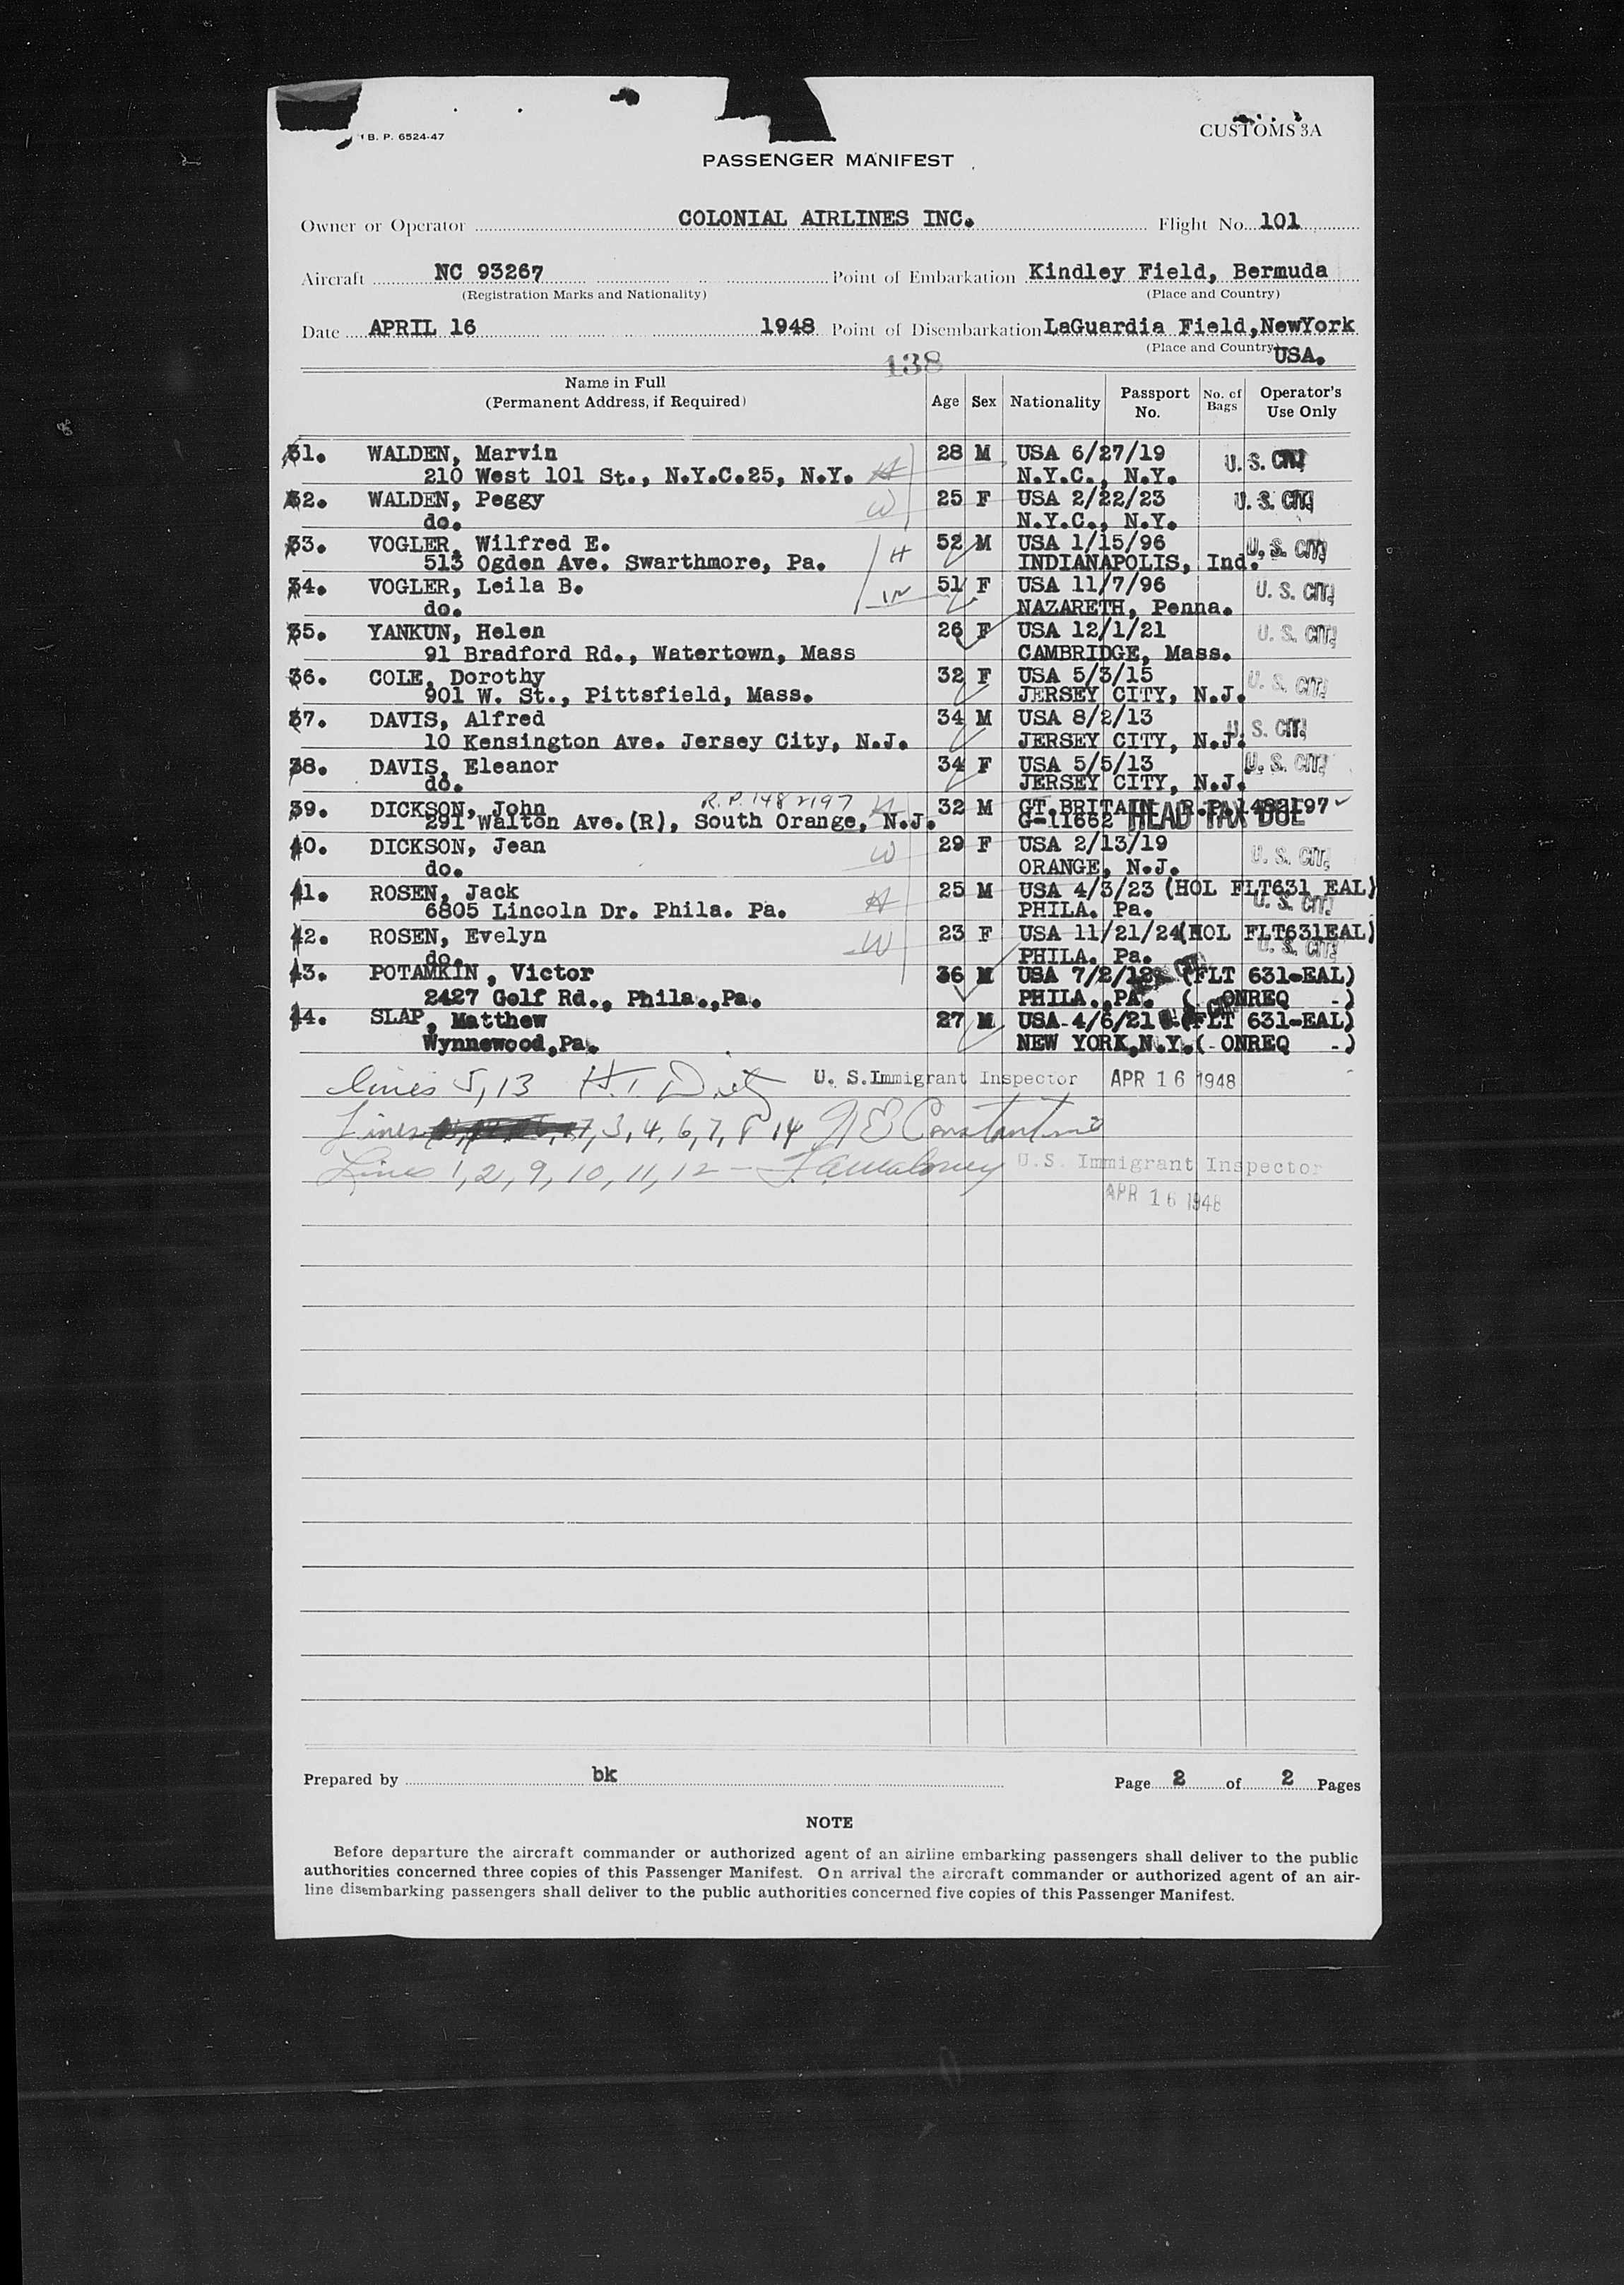 I B. P. 6524-47
CUSTOMS 3A
PASSENGER MANIFEST
Owner or Operator COLONIAL AIRLINES INC. Flight No. 101
Aircraft NC 93267 Point of Embarkation Kindley Field, Bermuda
(Registration Marks and Nationality) (Place and Country)
Date APRIL 16 1948 Point of Disembarkation LaGuardia Field, NewYork
(Place and Country) USA.
138
Name in Full
(Permanent Address, if Required) Age Sex Nationality Passport No. No. of Bags Operator's Use Only
31. WALDEN, Marvin 28 M USA 6/27/19 U. S. CIT.
210 West 101 St., N.Y.C.25, N.Y. H N.Y.C., N.Y.
32. WALDEN, Peggy 25 F USA 2/22/23 U. S. CIT.
do. W N.Y.C., N.Y.
33. VOGLER, Wilfred E. H 52 M USA 1/15/96 U. S. CIT.
513 Ogden Ave. Swarthmore, Pa. INDIANAPOLIS, Ind.
34. VOGLER, Leila B. W 51 F USA 11/7/96 U. S. CIT.
do. NAZARETH, Penna.
35. YANKUN, Helen 26 F USA 12/1/21 U. S. CIT.
91 Bradford Rd., Watertown, Mass CAMBRIDGE, Mass.
36. COLE, Dorothy 32 F USA 5/3/15 U. S. CIT.
901 W. St., Pittsfield, Mass. JERSEY CITY, N.J.
37. DAVIS, Alfred 34 M USA 8/2/13 U. S. CIT.
10 Kensington Ave. Jersey City, N.J. JERSEY CITY, N.J.
38. DAVIS, Eleanor 34 F USA 5/5/13 U. S. CIT.
do. JERSEY CITY, N.J.
39. DICKSON, John R.P. 1482197 H 32 M GT. BRITAIN R.P. 1482197
291 Walton Ave.(R), South Orange, N.J. G-11662 HEAD TAX DUE
40. DICKSON, Jean W 29 F USA 2/13/19 U. S. CIT.
do. ORANGE, N.J.
41. ROSEN, Jack H 25 M USA 4/3/23 (HOL FLT631 EAL)
6805 Lincoln Dr. Phila. Pa. PHILA. Pa. U. S. CIT.
42. ROSEN, Evelyn W 23 F USA 11/21/24(HOL FLT631EAL)
do. PHILA. Pa. U. S. CIT.
43. POTAMKIN, Victor 36 M USA 7/2/12 (FLT 631-EAL)
2427 Golf Rd., Phila.,Pa. PHILA.,PA. ( ONREQ -)
44. SLAP, Matthew 27 M USA 4/6/21 (FLT 631-EAL)
Wynnewood,Pa. NEW YORK,N.Y.( ONREQ -)
lines 5,13 U. S. Immigrant Inspector APR 16 1948
Lines 3, 4, 6, 7, 8 14 Constantine
Lines 1, 2, 9, 10, 11, 12 - U.S. Immigrant Inspector
APR 16 1948
Prepared by bk Page 2 of 2 Pages
NOTE
Before departure the aircraft commander or authorized agent of an airline embarking passengers shall deliver to the public
authorities concerned three copies of this Passenger Manifest. On arrival the aircraft commander or authorized agent of an air-
line disembarking passengers shall deliver to the public authorities concerned five copies of this Passenger Manifest.